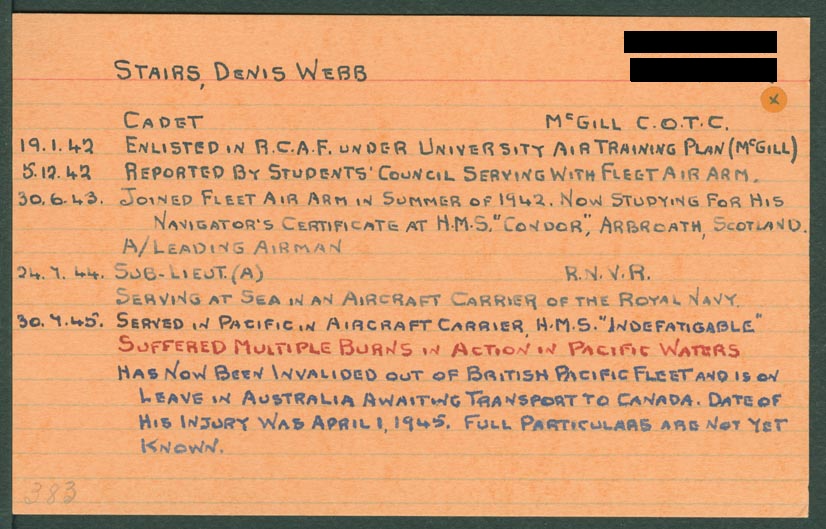 STAIRS, DENIS WEBB
x
CADET McGILL C.O.T.C.
19.1.42 ENLISTED IN R.C.A.F. UNDER UNIVERSITY AIR TRAINING PLAN (McGILL)
5.12.42 REPORTED BY STUDENTS' COUNCIL SERVING WITH FLEET AIR ARM.
30.6.43. JOINED FLEET AIR ARM IN SUMMER OF 1942. NOW STUDYING FOR HIS
NAVIGATOR'S CERTIFICATE AT H.M.S. "CONDOR", ARBROATH, SCOTLAND.
A/LEADING AIRMAN
24.7.44. SUB-LIEUT. (A) R.N.V.R.
SERVING AT SEA IN AN AIRCRAFT CARRIER OF THE ROYAL NAVY.
30.4.45. SERVED IN PACIFIC IN AIRCRAFT CARRIER, H.M.S. "INDEFATIGABLE"
SUFFERED MULTIPLE BURNS IN ACTION IN PACIFIC WATERS
HAS NOW BEEN INVALIDED OUT OF BRITISH PACIFIC FLEET AND IS ON
LEAVE IN AUSTRALIA AWAITING TRANSPORT TO CANADA. DATE OF
HIS INJURY WAS APRIL 1, 1945. FULL PARTICULARS ARE NOT YET
KNOWN.
383